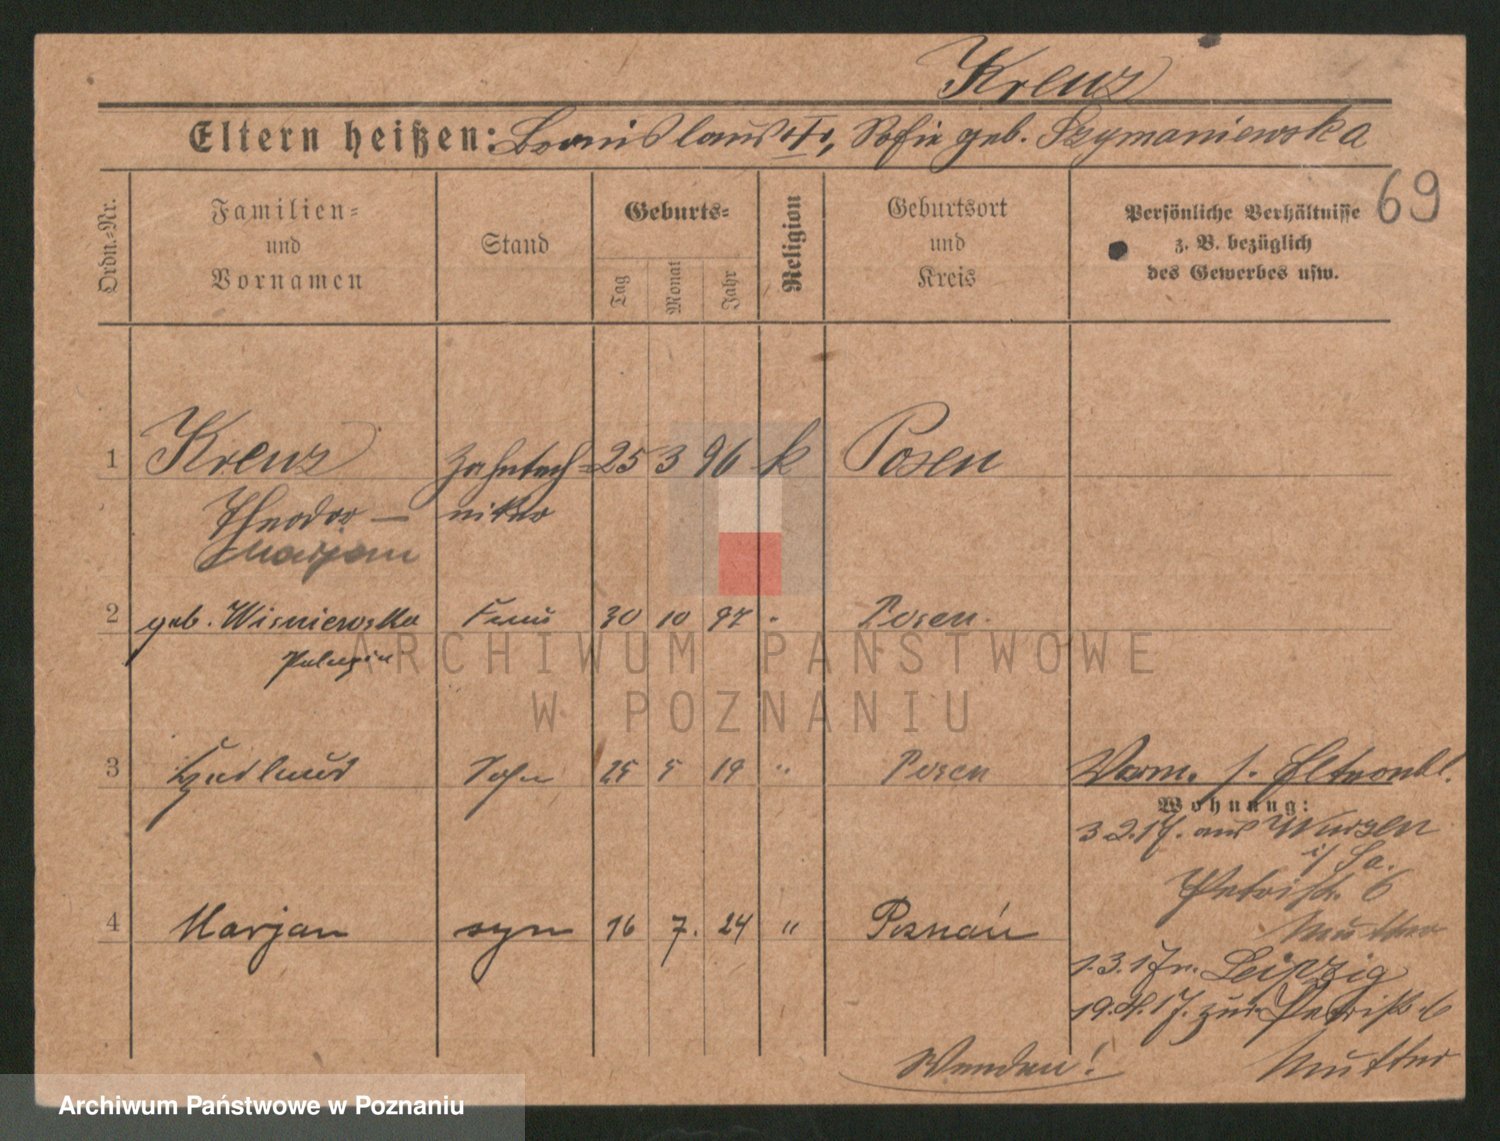 Krenz
Eltern heißen: Bronislaus ✝, Sofie geb. Szymaniewska
69
Ordn.-Nr.
Familien- und Vornamen
Stand
Geburts-
Tag
Monat
Jahr
Religion
Geburtsort und Kreis
Persönliche Verhältnisse
z. B. bezüglich
des Gewerbes usw.
1 Krenz Zahntech- 25 3 96 k Posen
Theodor - niker
Marjan
2 geb. Wisniewska Frau 30 10 97 " Posen
Pelagia
3 Sohn 25 5 19 " Posen
4 Marjan syn 16 7. 24 " Poznań
Vorm. s. Elternbl.
Wohnung:
3.2.17. aus Wurzen
i/Sa.
Petristr. 6
Mutter
1.3.17 n. Leipzig
19.4.17. zur. Petristr. 6
Mutter
Wenden!
ARCHIWUM PAŃSTWOWE
W POZNANIU
Archiwum Państwowe w Poznaniu